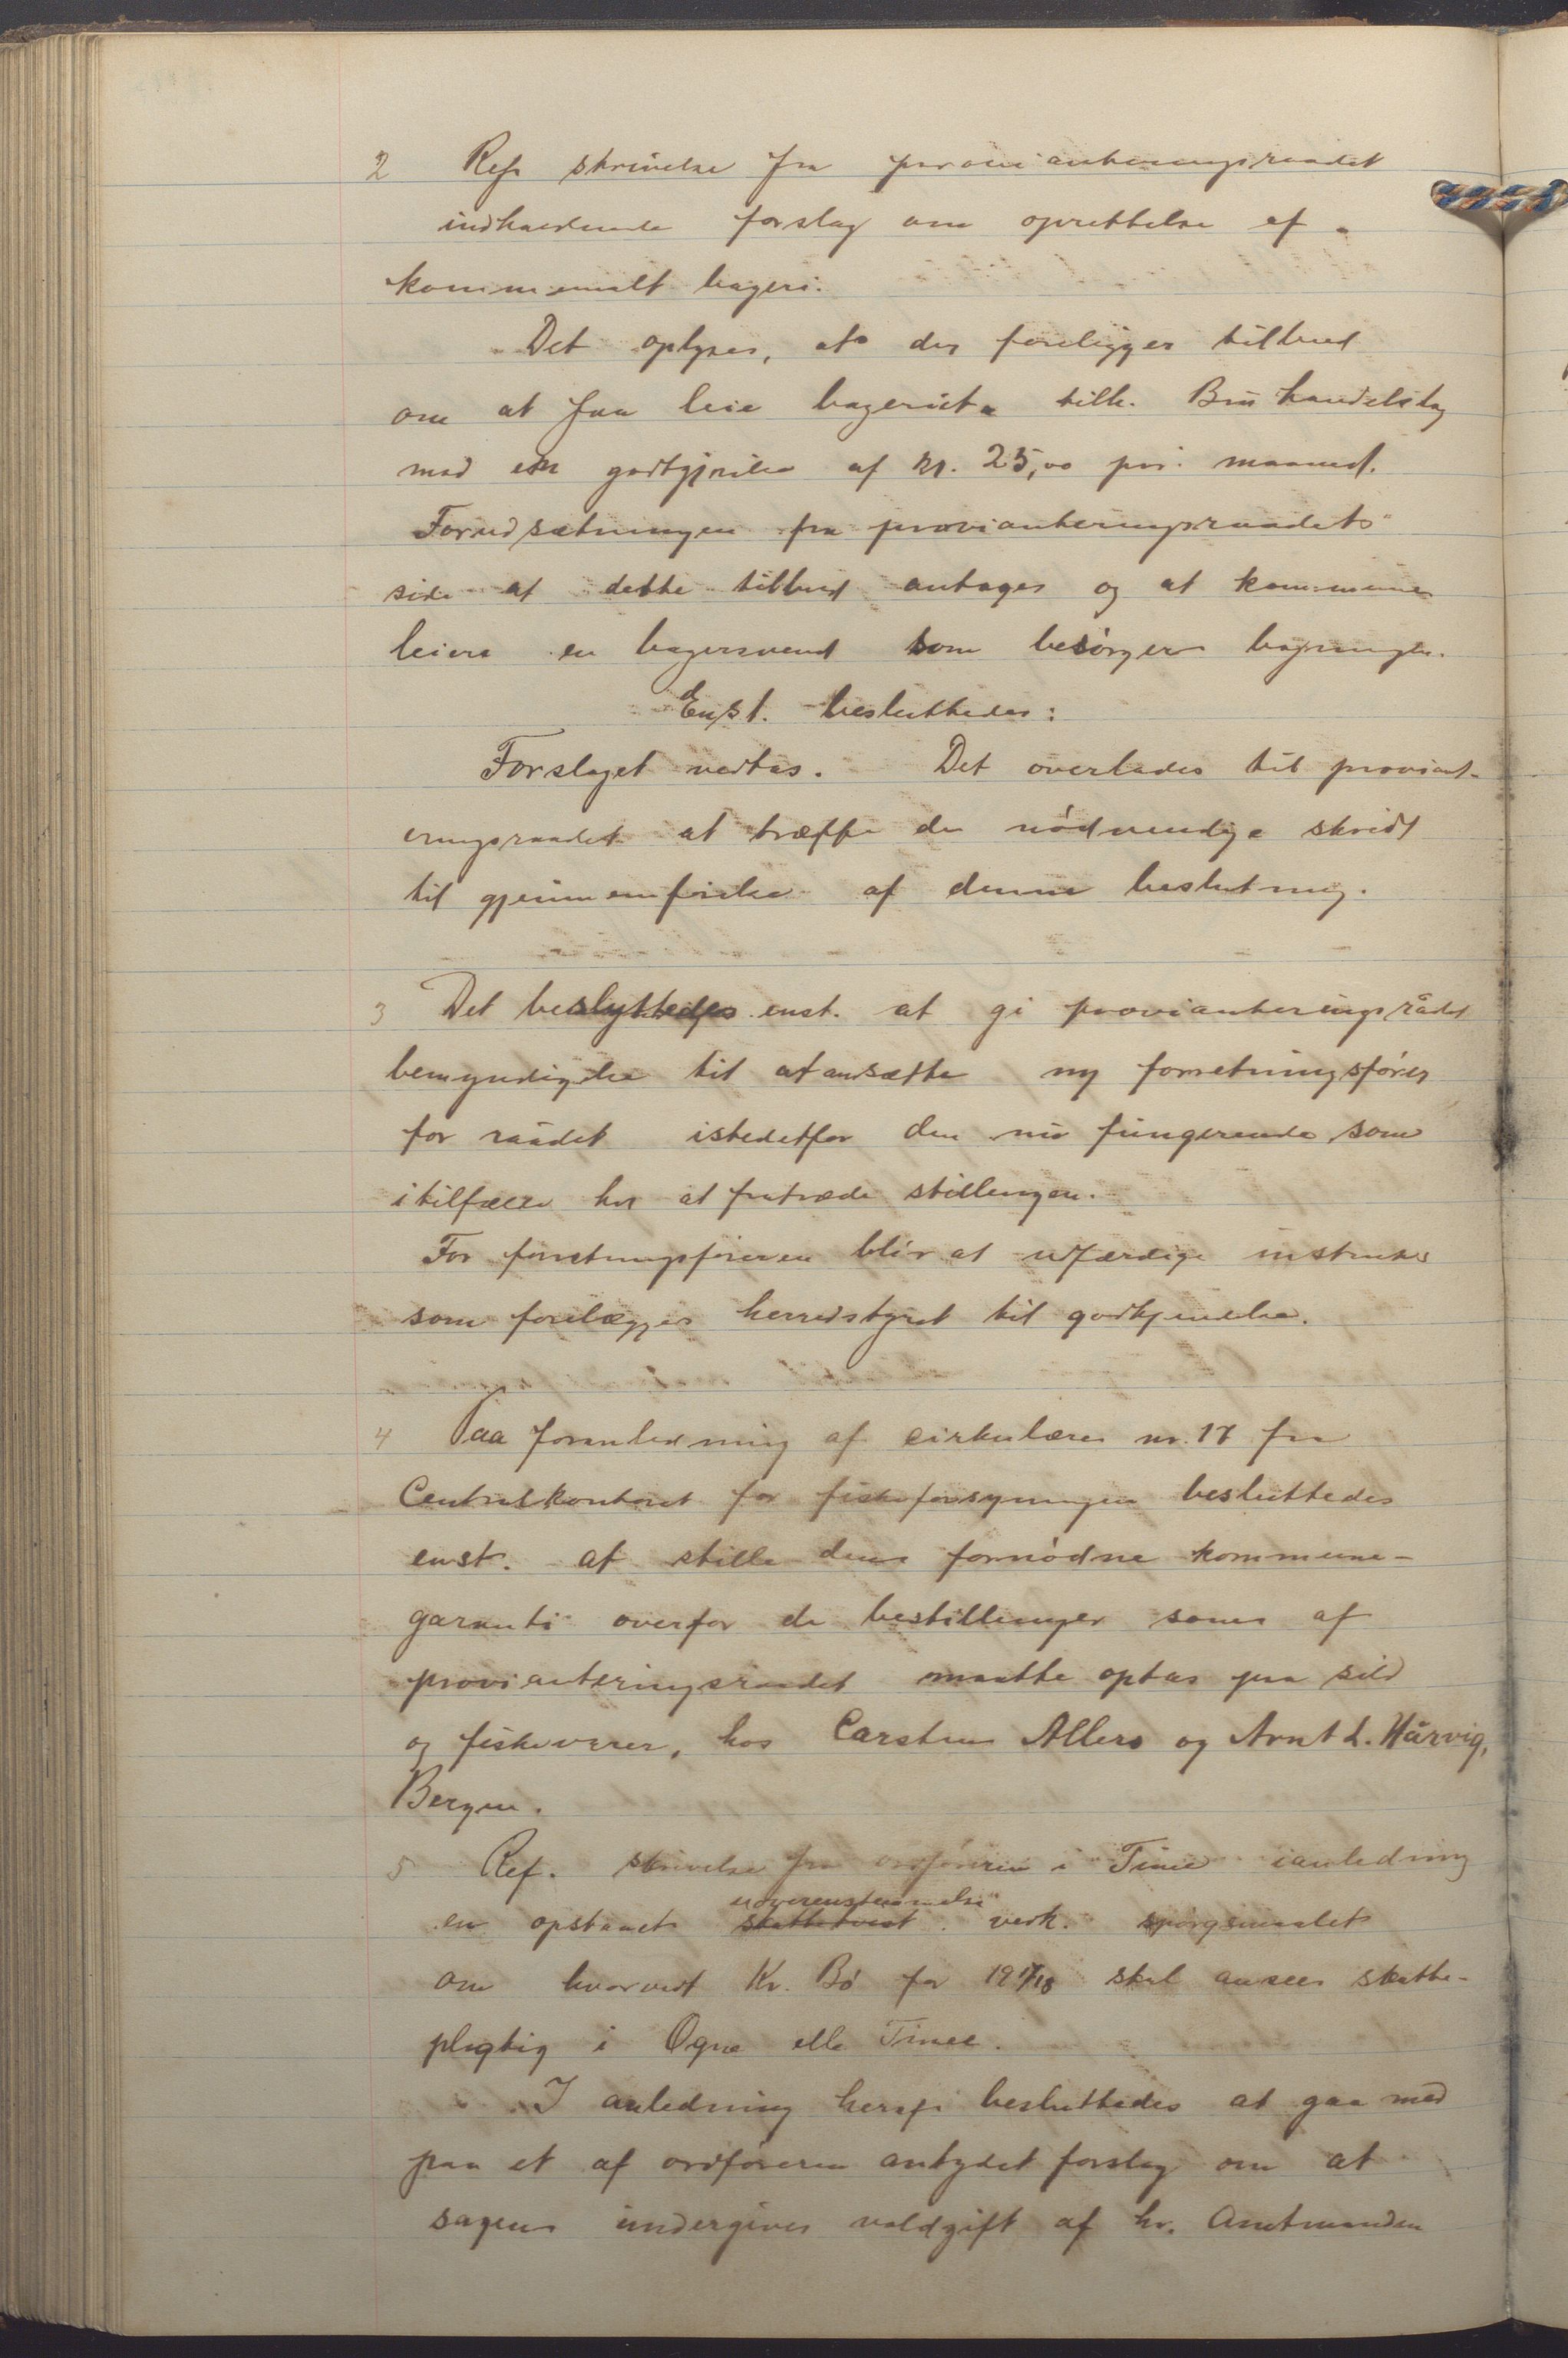 2 Ref. skrivelse fra provianteringsraadet
indholdende forslag om oprettelse af
kommunalt bageri.
Det oplyses, at der foreligger tilbud
om at faa leie bageriet tilh. Brü handelslag
mod en godtgjørelse af kr. 25,00 pr. maaned.
Forudsætningen fra provianteringsraadets
side at dette tilbud antages og at kommunen
leier en bagersvend som besørger bagningen.
Enst. besluttedes:
Forslaget vedtas. Det overlades til proviant-
eringsraadet at træffe de nødvendige skridt
til gjennemførelse af denne beslutning.
3 Det beslyttedes enst. at gi provianteringsrådet
bemyndigelse til at ansætte ny forretningsfører
for raadet istedetfor den nu fungerende som
i tilfælde har at fratræde stillingen.
For forretningsføreren blir at utfærdige instruks
som forelægges herredstyret til godkjendelse.
4 Paa foranledning af cirkulære nr. 17 fra
Centralkontoret for fiskeforsyningen besluttedes
enst. at stille den fornødne kommune-
garanti overfor de bestillinger som af
provianteringsraadet maatte optas paa sild
og fiskevarer, hos Carsten Allers og Arnt L. Hårvig,
Bergen.
5 Ref. skrivelse fra ordføreren i Time i anledning
en opstaaet skattetvist uoverenstemmelse vedk. spørgsmaalet
om hvorvidt Kr. Bø for 1917/18 skal ansees skatte-
pligtig i Ogna eller Time.
I anledning heraf besluttedes at gaa med
paa et af ordføreren antydet forslag om at
sagen undergives voldgift af hr. Amtmanden